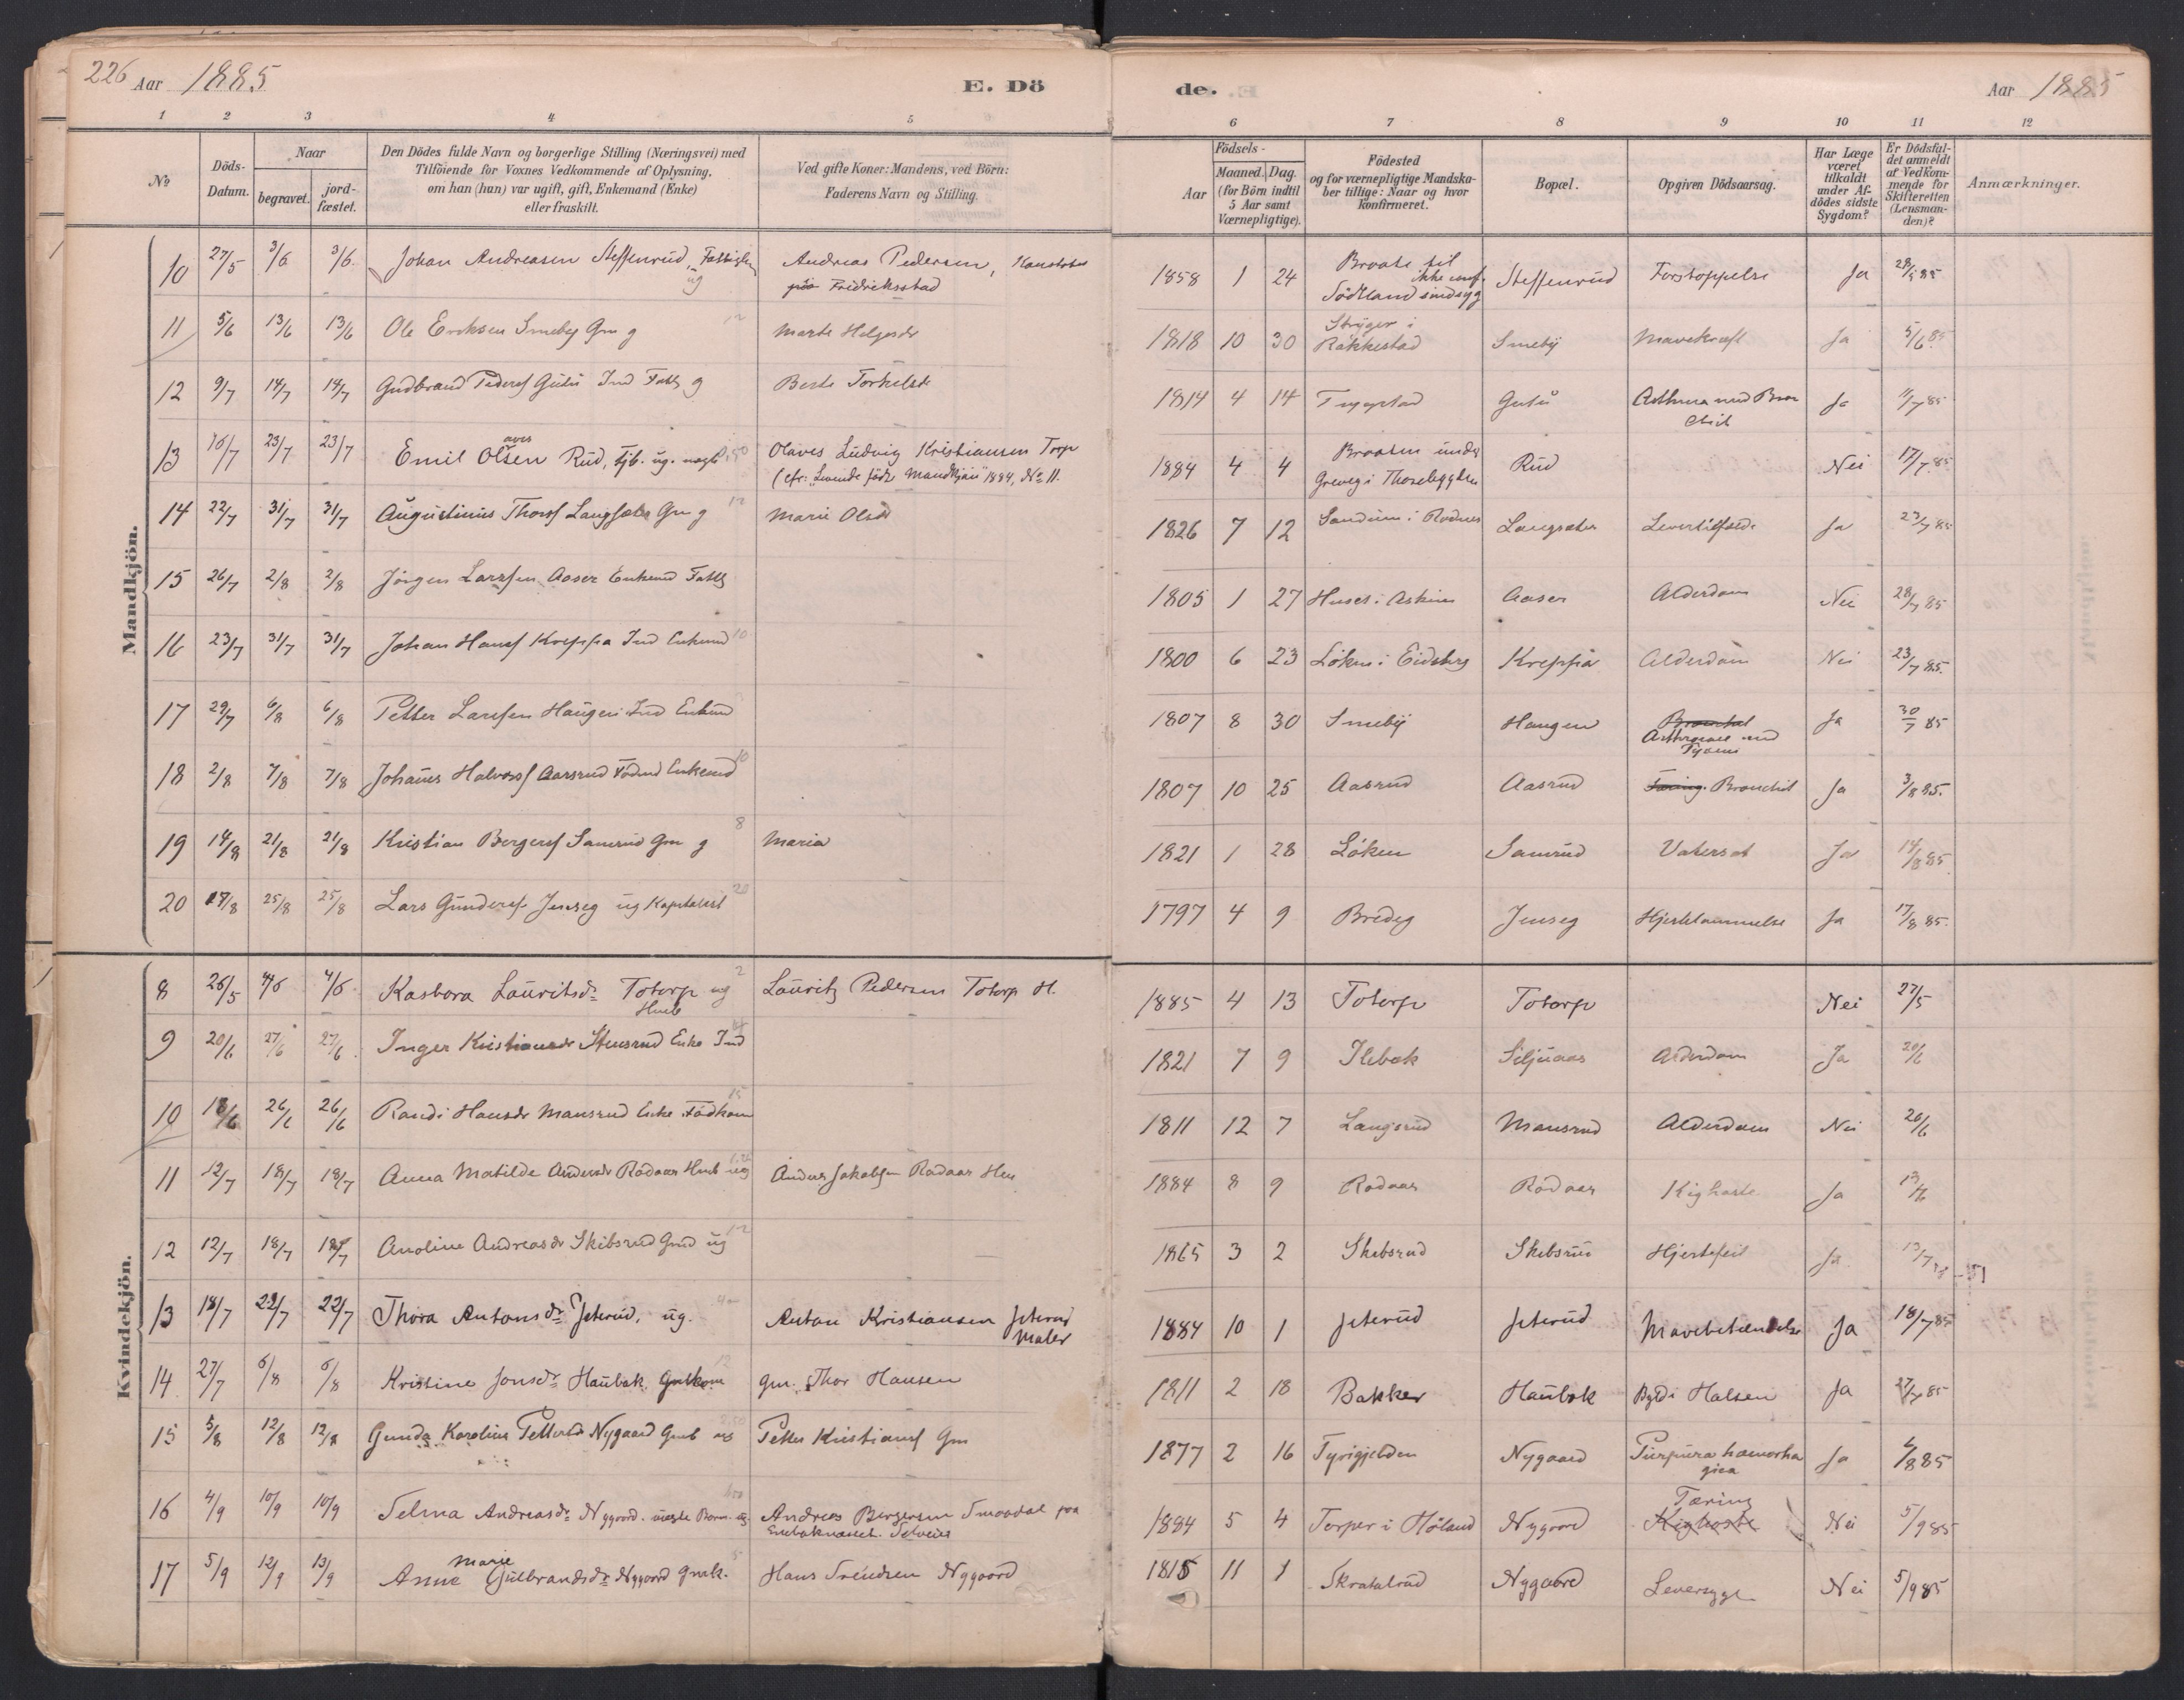 226 Aar 1885 E. Dö
de. Aar 1885
1 2 3 4 5
6 7 8 9 10 11 12
No Döds-Datum. Naar begravet. jord-fæstet. Den Dödes fulde Navn og borgerlige Stilling (Næringsvei) med Tilföiende for Voxnes Vedkommende af Oplysning, om han (hun) var ugift, gift, Enkemand (Enke) eller fraskilt. Ved gifte Koner: Mandens, ved Börn: Faderens Navn og Stilling.
Födsels- Aar Maaned. Dag. (for Börn indtil 5 Aar samt Værnepligtige). Födested og for værnepligtige Mandskaber tillige: Naar og hvor konfirmeret. Bopæl. Opgiven Dödsaarsag. Har Læge været tilkaldt under Afdödes sidste Sygdom? Er Dödsfaldet anmeldt af Vedkommende for Skifteretten (Lensmanden)? Anmærkninger.
Mandkjön.
10 27/5 3/6 3/6 Johan Andreasen Steffenrud, ug Andreas Pedersen, Fredriksstad 1858 1 24 Braate til Södtland sindsyg Steffenrud Forstoppelse Ja 28/5 85
11 5/6 13/6 13/6 Ole Eriksen Smeby Gm g Marte Helgesdr 1818 10 30 i Rakkestad Smeby Mavekræft Ja 5/6 85
12 9/7 14/7 14/7 Gudbrand Pedersf Gutu Ind Fattg g Berte Torkelsdr 1814 4 14 Trygstad Gutu Asthma med Bronchit Ja 11/7 85
13 16/7 23/7 23/7 Emil Olavesen Rud, tjb. ug. uægte Olaves Ludvig Kristiansen Torp (cfr: "Levende födte Mandkjön" 1884, No 11. 1884 4 4 Braaten under Greveg i Rud Nei 17/7 85
14 22/7 31/7 31/7 Augustinus Thorsf Langsæter Gm g 12 Marie Olsdr 1826 7 12 Sandum i Rödnes Langsæter Ja 23/7 85
15 26/7 2/8 2/8 Jörgen Larssen Aaser Enkemd Fattg 1805 1 27 Huset i Askim Aaser Alderdom Nei 28/7 85
16 23/7 31/7 31/7 Johan Hansf Kreppa Ind Enkemd 10 1800 6 23 Löken i Eidsberg Kreppa Alderdom Nei 23/7 85.
17 29/7 6/8 6/8 Petter Larssen Haugen Ind Enkemd 1807 8 30 Smeby Haugen Ja 30/7 85
18 2/8 7/8 7/8 Johanes Halvorsf Aarsrud Födmd Enkemd 10 1807 10 25 Aasrud Aasrud Tæring Bronchit Ja 3/8 85.
19 14/8 21/8 21/8 Kristian Bergersf Samrud Gm g 8 Maria 1821 1 28 Löken Samrud Vatersot Ja 14/8 85
20 17/8 25/8 25/8 Lars Gundersf Jenseg ug Kapitalist 20 1797 4 9 Bredeg Jenseg Hjertelammelse Ja 17/8 85.
Kvindekjön.
8 26/5 4/6 4/6 Kasbara Lauritsdr Totorp ug Hmb 2 Lauritz Pedersen Totorp H. 1885 4 13 Totorp Totorp Nei 27/5
9 20/6 27/6 27/6 Inger Kristiansdr Stensrud Enke Ind 1821 7 9 Ilebæk Siljuaas Alderdom Ja 20/6
10 18/6 26/6 26/6 Randi Hansdr Mansrud Enke Födkone 15 1811 12 7 Langsrud Mansrud Alderdom Nei 20/6
11 12/7 18/7 18/7 Anna Matilde Andersdr Rödaas Hmb ug Anders Jakobsen Rödaas Hm 1884 8 9 Rödaas Rödaas Kighoste Ja 13/7
12 12/7 18/7 18/7 Anoline Andreasdr Skibsrud Gmd ug 12 1865 3 2 Skibsrud Skibsrud Hjertefeil Ja 13/7
13 18/7 22/7 22/7 Thora Antonsdr Jeterud, ug. Anton Kristiansen Jeterud Maler 1884 10 1 Jeterud Jeterud Mavebetændelse Ja 18/7 85
14 27/7 6/8 6/8 Kristine Jonsdr Haubæk Gmkone 12 gm. Thor Hansen 1811 2 18 Bakker Haubæk Byld i Halsen Ja 27/7 85
15 5/8 12/8 12/8 Gunda Karoline Pettersdr Nygaard Gmb ug 2.50 Petter Kristiansf Gm 1877 2 16 Nygaard Purpura hæmorhagica Ja 6/8 85
16 4/9 10/9 10/9 Selma Andreasdr Nygaard. uægte Barn ug. Andreas Bergersen Smaadal paa Enebaknæsset Selveier 1884 5 4 Torper i Höland Nygaard Tæring Kighoste Nei 5/9 85
17 5/9 12/9 13/9 Anne Marie Gulbrandsdr Nygaard Gmk. 5 Hans Svendsen Nygaard 1815 11 1 Skratalrud Nygaard Leversyge Nei 5/9 85